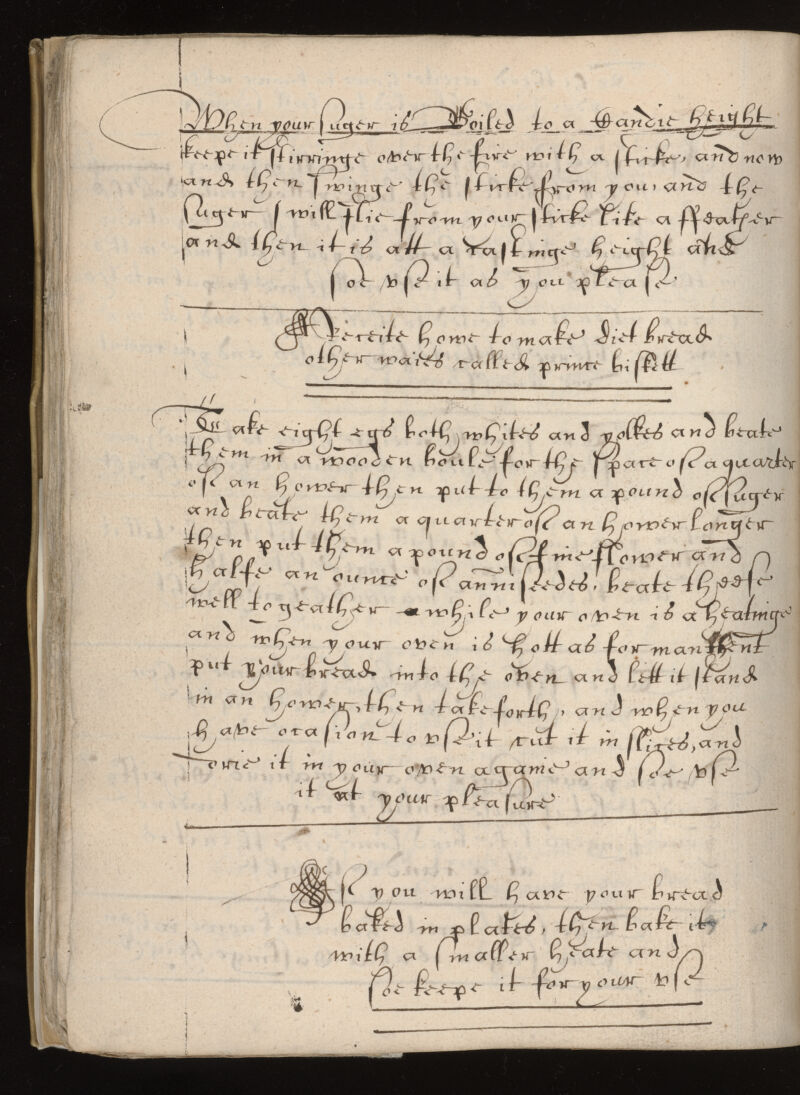 When your suger is Boiled to a Candie height
keepe it stirringe over the fire with a sticke, and now
and then swinge the sticke from you, and the
suger will flie from your sticke like a ffeather
and then it is att a castinge height and
soe vse it as you please
A Receite howe to make diet bread
other waies called prince biskett
Take eight egs both whites and yolkes and beate
them in a wooden boule for the space of a quarter
of an hower then put to them a pound of suger
and beate them a quarter of an hower longer
then put them a pound of fine flower and
halfe an ounce of anniseedes, beate theese
well togeather while your oven is a heatinge
and when your oven is hott as for manchent
put your bread into the oven and lett it stand
in an hower, then take forth, and when you
have ocasion to vse it cut it in slices, and
drie it in your oven againe and soe vse
it at your pleasure
If you will have your bread
baked in plates, then bake it
with a smaller heate and
soe keepe it for your vse